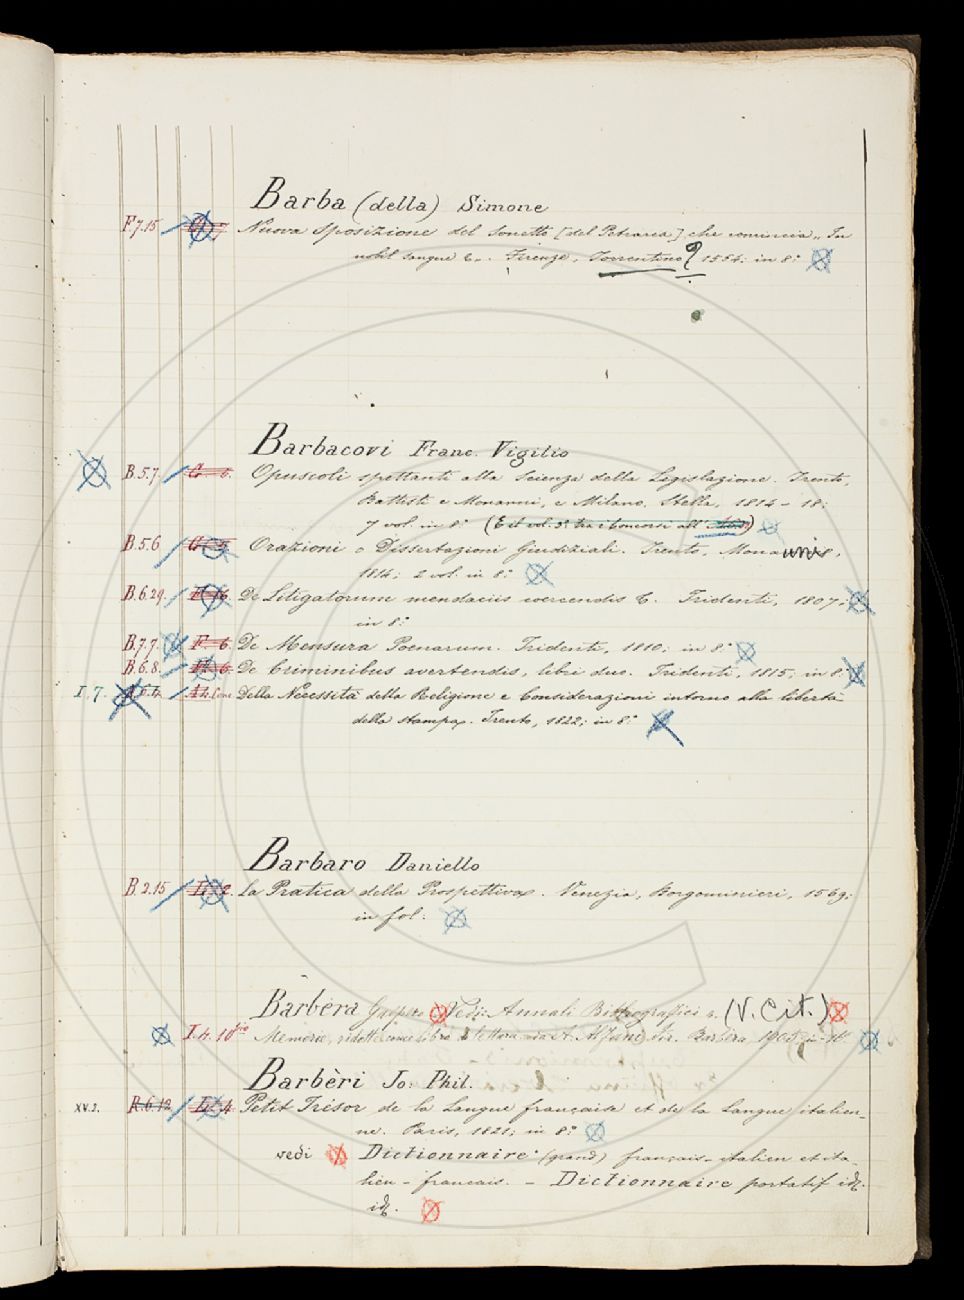 Barba (della) Simone
F.7.15 Nuova Sposizione del Sonetto [del Petrarca] che comincia „ In
nobil sangue &„. Firenze, Torrentino? 1554; in 8:°
Barbacovi Franc. Vigilio
B.5.7. G. 6. Opuscoli spettanti alla Scienza della Legislazione. Trento,
Battisti e Monauni, e Milano, Stella, 1814 – 18;
7 vol. in 8.° (E il vol. 3.° tra i Concorsi all'
B.5.6 Orazioni o Dissertazioni Giudiziali. Trento, Monauni,
1814; 2 vol. in 8:°
B.6.29. De Litigatorum mendaciis coercendis &. Tridenti, 1807;
in 8:°
B.7.7. F. 6. De Mensura Poenarum. Tridenti, 1810; in 8:°
B.6.8. De Criminibus avertendis, libri duo. Tridenti, 1815; in 8:°
I.7. Della Necessità della Religione e Considerazioni intorno alla libertà
della stampa. Trento, 1822; in 8:°
Barbaro Daniello
B 2.15 La Pratica della Prospettiva. Venezia, Borgominieri, 1569;
in fol:
Barbèra Gaspero Vedi: Annali Bibliografici &. (V. Cit.)
I.4.10 Memorie,
Barbèri Jo: Phil.
XV.2. R.6.12 L. 4 Petit Trésor de la Langue française et de la Langue italien_
ne. Paris, 1821; in 8:°
vedi Dictionnaire (grand) français-italien et ita_
lien – français. – Dictionnaire portatif id.
id.